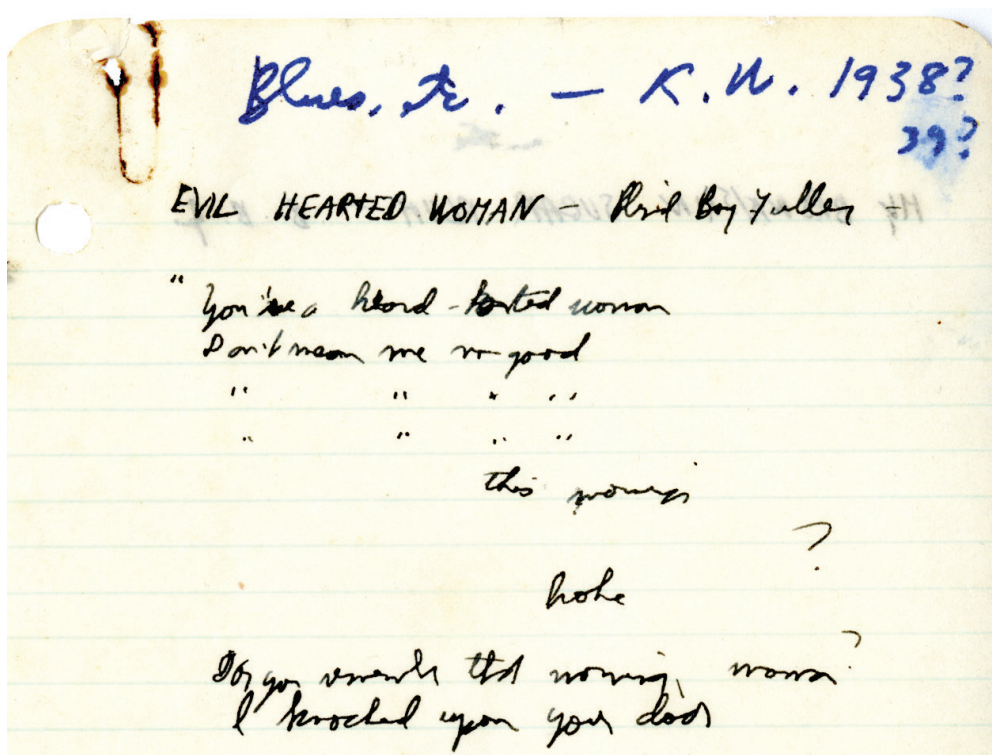 Blues, etc. — K.W. 1938?
39?
EVIL HEARTED WOMAN — Blind Boy Fuller —
"You're a heard-hearted woman
Don't mean me no good
" " " "
" " " "
this morning
?
Do you remember that morning, woman?
I knocked upon your door